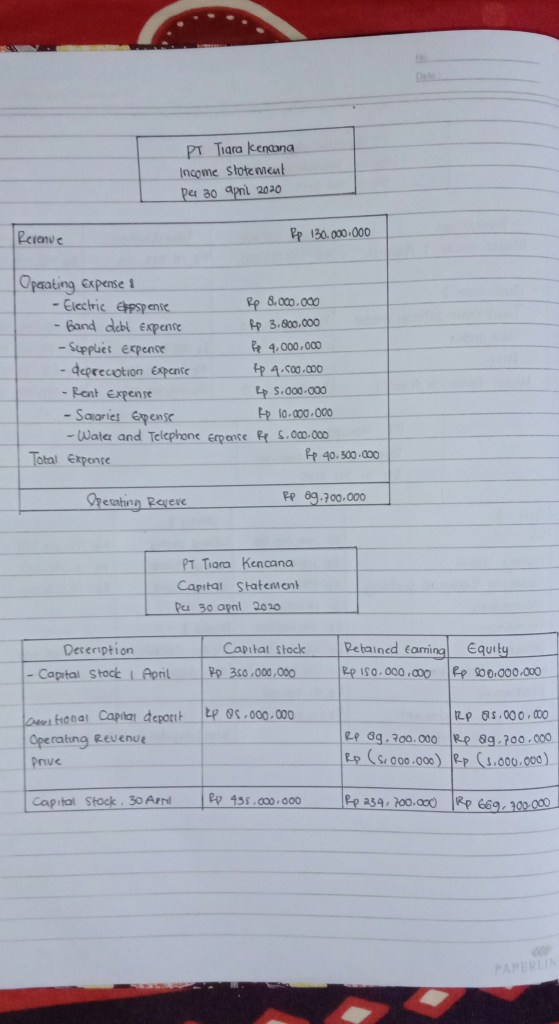 No
Date :
PT Tiara Kencana
Income Statement
Per 30 april 2020
Revenue Rp 130.000.000
Operating Expense :
- Electric Expspense Rp 8.000.000
- Band debt Expense Rp 3.800.000
- Supplies Expense Rp 4.000.000
- depreciation Expense Rp 4.500.000
- Rent Expense Rp 5.000.000
- Salaries Expense Rp 10.000.000
- Water and Telephone Expense Rp 5.000.000
Total Expense Rp 40.300.000
Operating Rp 89.700.000
PT Tiara Kencana
Capital Statement
Per 30 april 2020
Description Capital Stock Retained earning Equity
- Capital Stock 1 April Rp 350.000.000 Rp 150.000.000 Rp 500.000.000
Capital deposit Rp 85.000.000 Rp 85.000.000
Operating Revenue Rp 89.700.000 Rp 89.700.000
Prive Rp (5.000.000) Rp (5.000.000)
Capital Stock, 30 April Rp 435.000.000 Rp 234.700.000 Rp 669.700.000
PAPERLIN